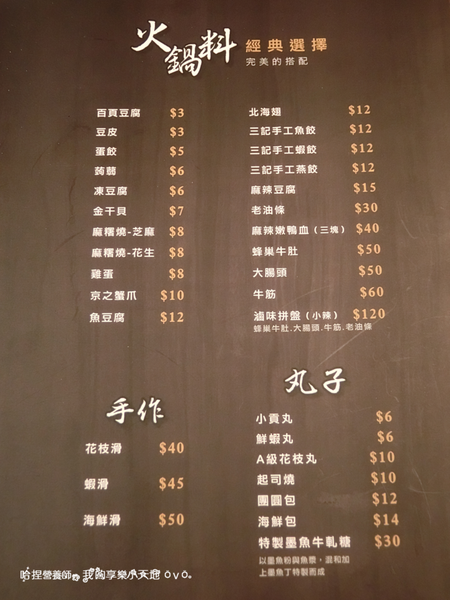 火鍋料 經典選擇
完美的搭配
百頁豆腐 $3
豆皮 $3
蛋餃 $5
蒟蒻 $6
凍豆腐 $6
金干貝 $7
麻糬燒-芝麻 $8
麻糬燒-花生 $8
雞蛋 $8
京之蟹爪 $10
魚豆腐 $12
北海翅 $12
三記手工魚餃 $12
三記手工蝦餃 $12
三記手工燕餃 $12
麻辣豆腐 $15
老油條 $30
麻辣嫩鴨血（三塊） $40
蜂巢牛肚 $50
大腸頭 $50
牛筋 $60
滷味拼盤（小辣） $120
蜂巢牛肚.大腸頭.牛筋.老油條
手作
花枝滑 $40
蝦滑 $45
海鮮滑 $50
丸子
小貢丸 $6
鮮蝦丸 $6
A級花枝丸 $10
起司燒 $10
團圓包 $12
海鮮包 $14
特製墨魚牛軋糖 $30
以墨魚粉與魚漿，混和加
上墨魚丁特製而成